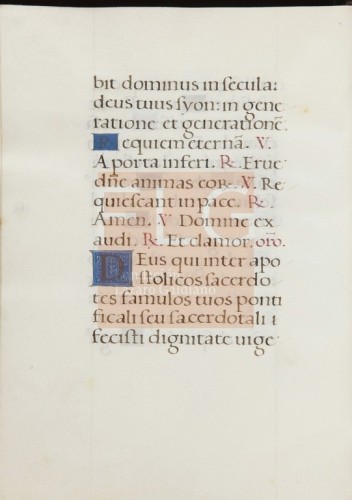 bit dominus in secula:
deus tuus syon: in gene
ratione et generationē.
Requiem eternā. V.
A porta inferi. R. Erue
dn̄e animas eor. V. Re
quiescant in pace. R.
Amen. V Domine ex
audi. R. Et clamor. orō.
Deus qui inter apo
stolicos sacerdo
tes famulos tuos ponti
ficali seu sacerdotali i
fecisti dignitate uige